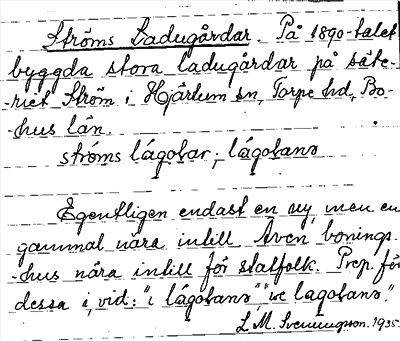 Ströms Ladugårdar. På 1890-talet
byggda stora ladugårdar på säte-
-riet Ström i Hjärtum sn, Torpe hd, Bo-
-hus län.
ströms lágoḷar; lágoḷanə
Egentligen endast en ny, men en
gammal nära intill. Även bonings-
-hus nära intill för stalfolk. Prep. för
dessa i, vid: "i lágoḷanə", "ve lagoḷanə."
L. M. Svenungsson. 1935.